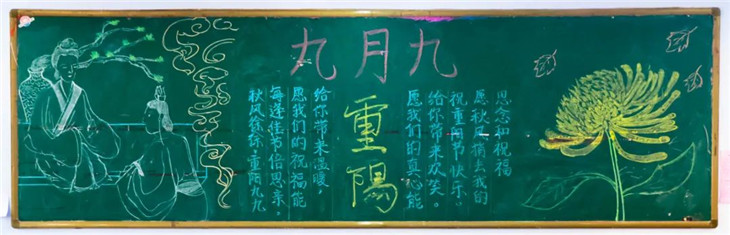 九月九
重陽
秋风你，重阳九九
每逢佳节倍思亲。
愿我们的祝福能
给你带来温暖。
愿我们的真心能
给你带来欢笑。
祝重阳节快乐。
愿秋风捎去我的
思念和祝福